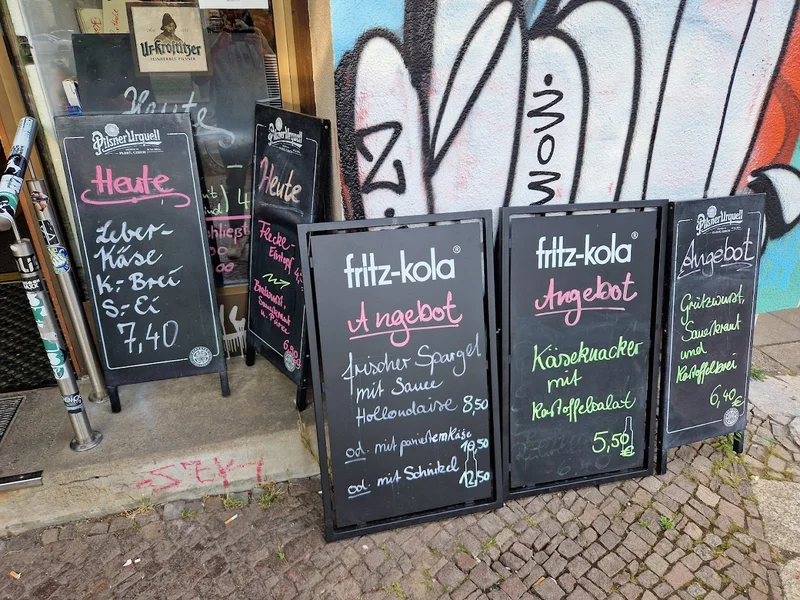 Ur-Krostitzer
FEINHERBES PILSNER
Heute
Pilsner Urquell
Heute
Leber-
Käse
K.-Brei
S.-Ei
7,40
Pilsner Urquell
Heute
Flecke-
Eintopf
Bratwurst,
Sauerkraut
u. Püree
6,90
fritz-kola®
Angebot
frischer Spargel
mit Sauce
Hollondaise 8,50
od. mit paniertem Käse
10,50
od. mit Schnitzel 12,50
fritz-kola®
Angebot
Käseknacker
mit
Kartoffelsalat
5,50€
Pilsner Urquell
Angebot
Grützwurst,
Sauerkraut
und
Kartoffelbrei
6,40€